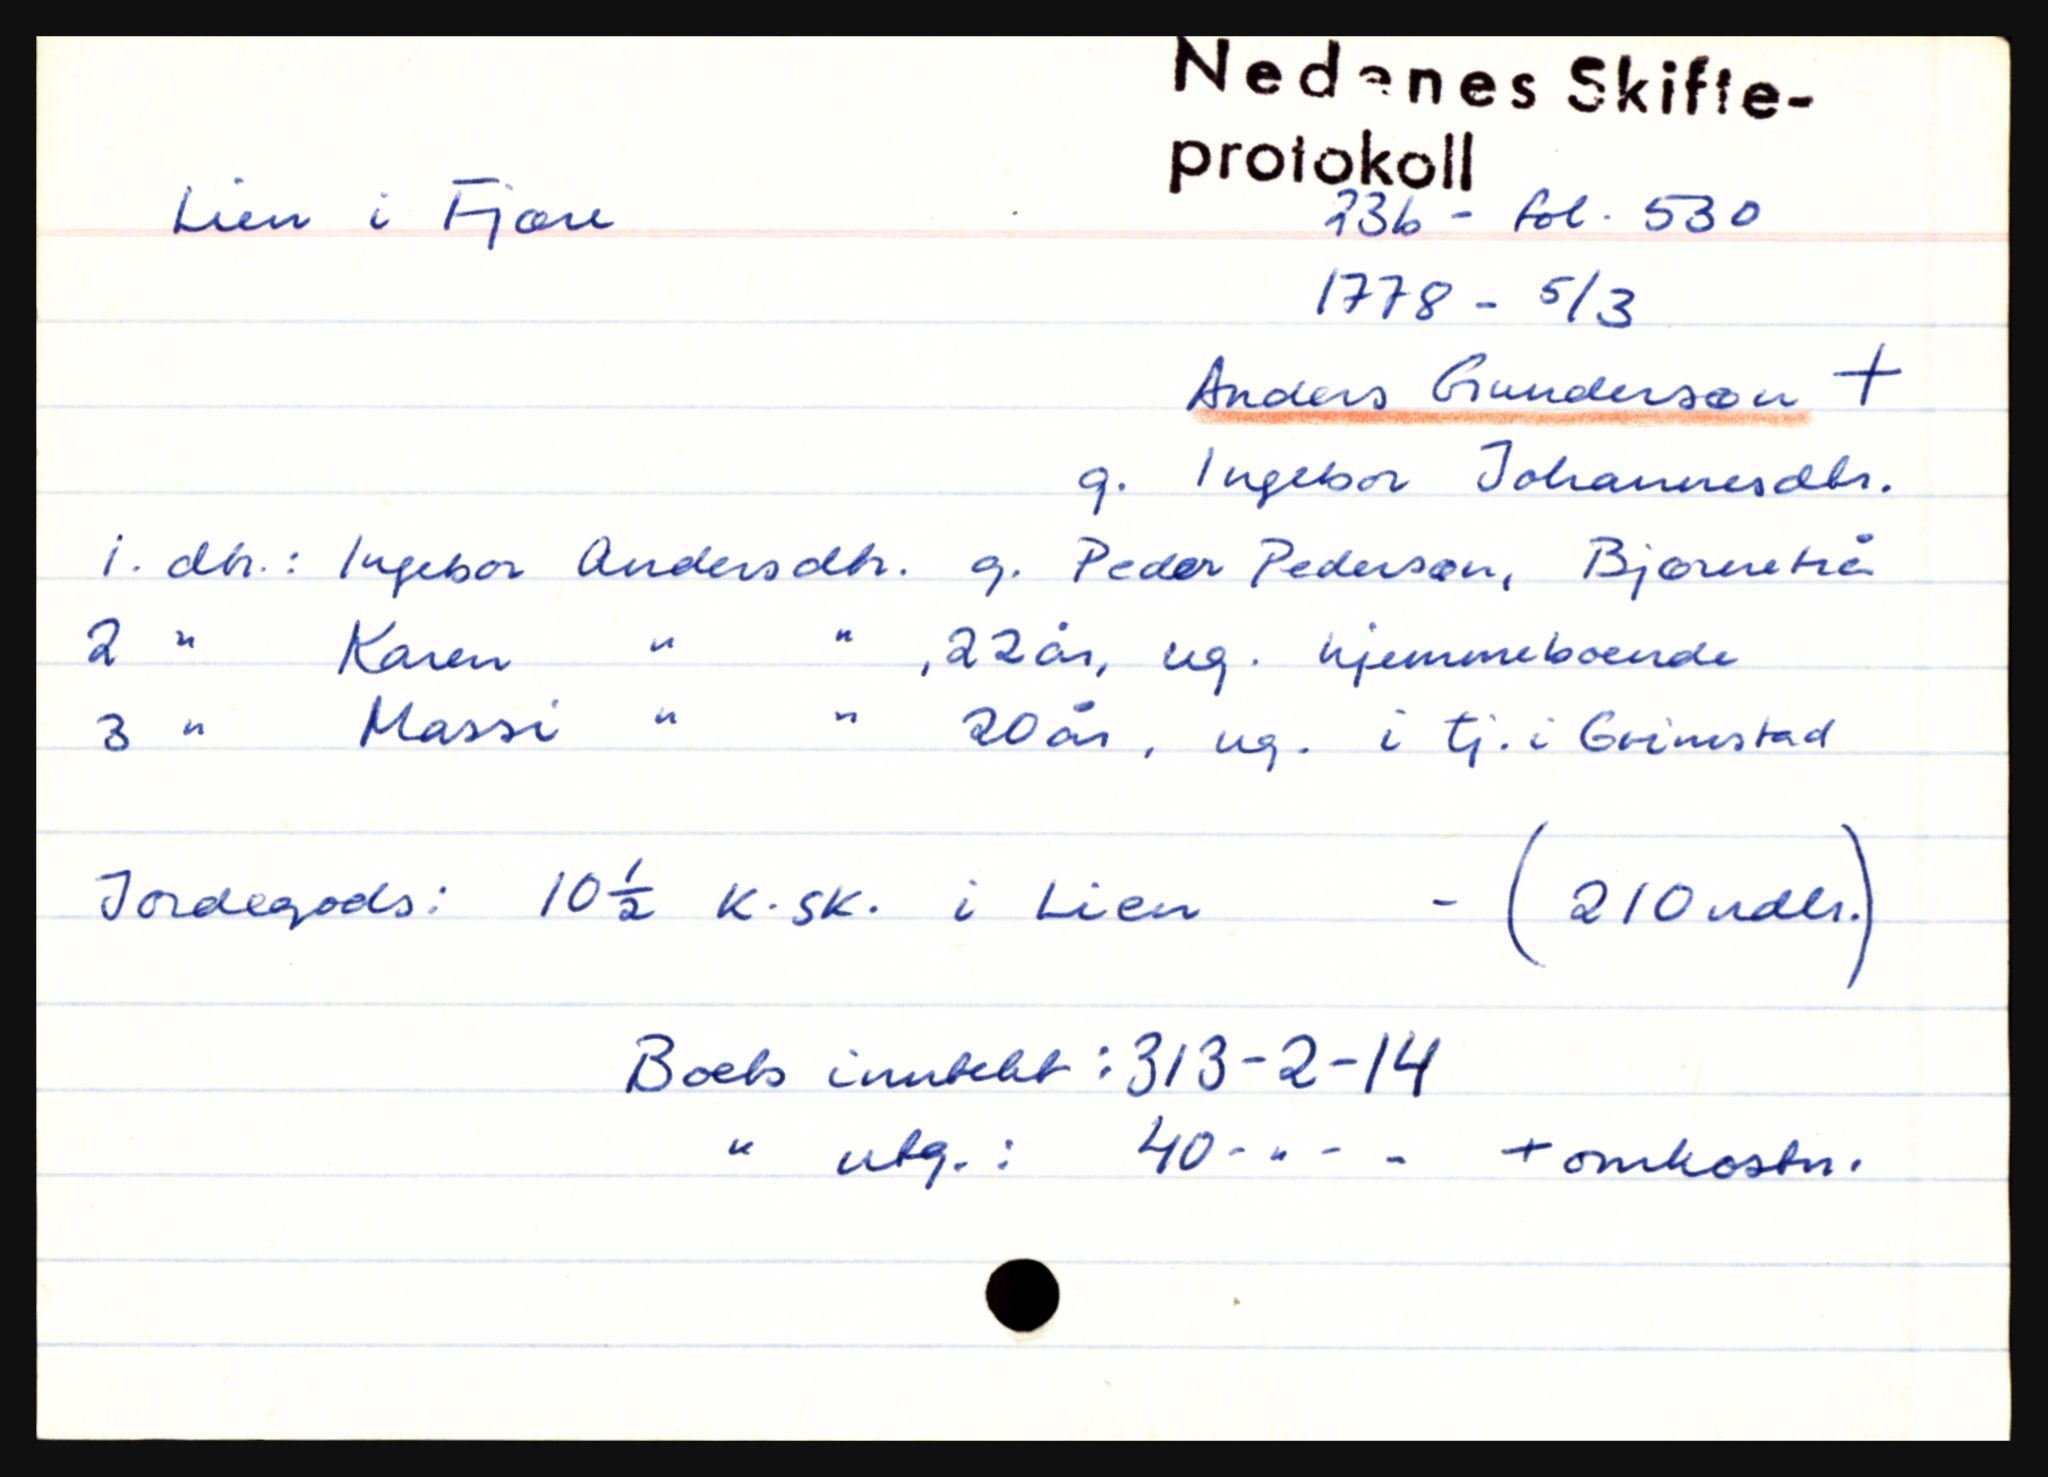 Nedenes Skifte-
protokoll
Lien i Fjære
23b - fol. 530
1778 - 5/3
Anders Gunderson +
g. Ingebor Johannesdtr.
1. dtr.: Ingebor Andersdtr. g. Peder Pederson, Bjørnetrå
2 " Karen " " , 22 år, ug. hjemmeboende
3 " Massi " " 20 år, ug. i tj. i Grimstad
Jordegods: 10 1/2 k. sk. i Lien - (210 rdlr.)
Boets inntekt: 313-2-14
" utg.: 40 - " - - + omkostn.